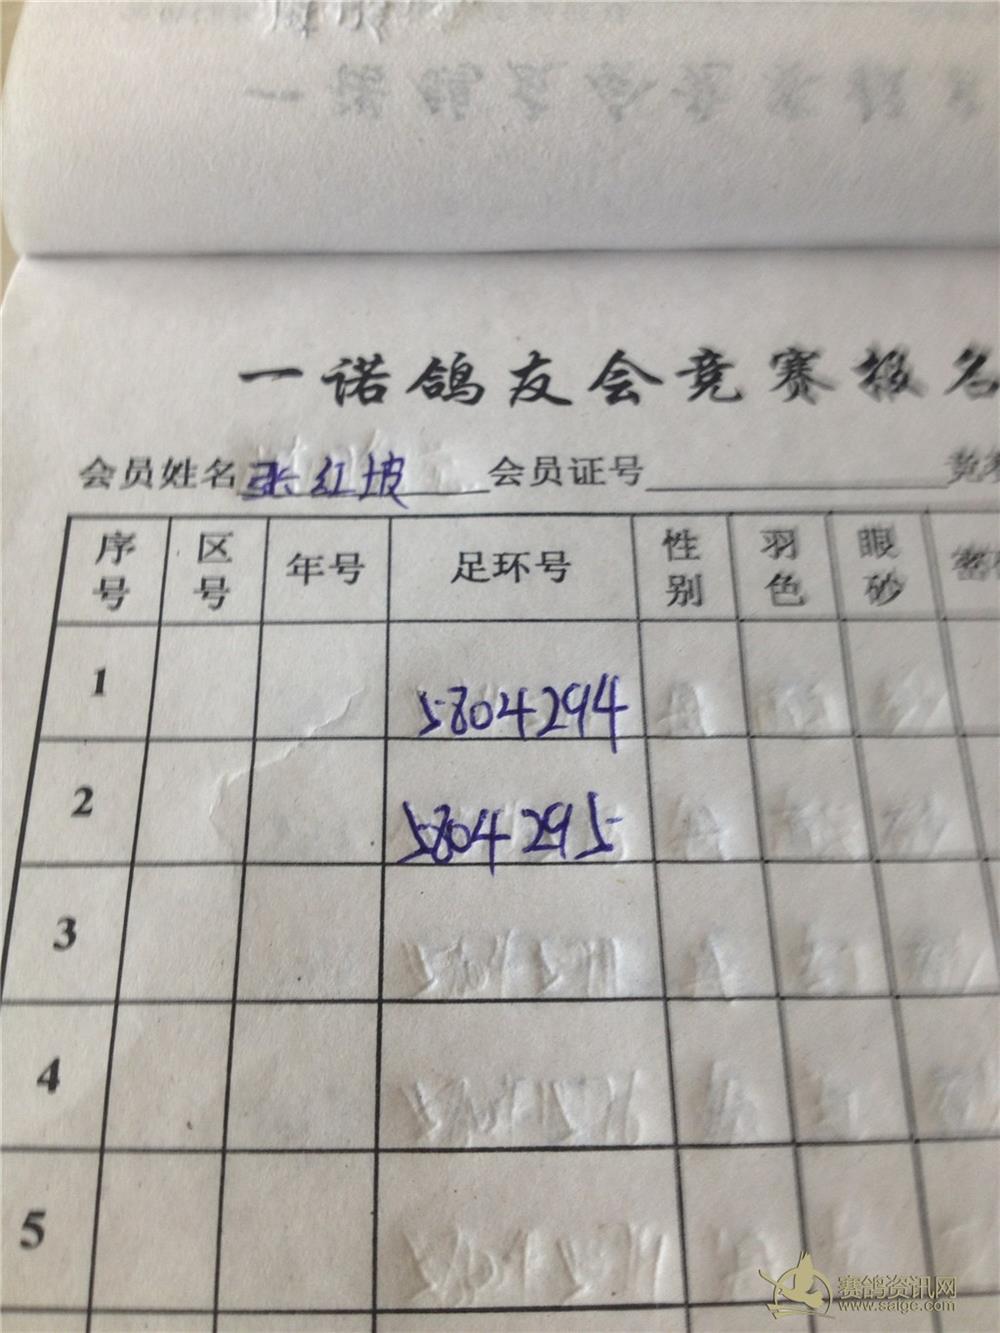 一诺鸽友会竞赛报名
一诺鸽友会竞赛报名
会员姓名 张红坡 会员证号
序号 区号 年号 足环号 性别 羽色 眼砂
1 5804294
2 5804295
3
4
5
赛鸽资讯网
www.saigc.com